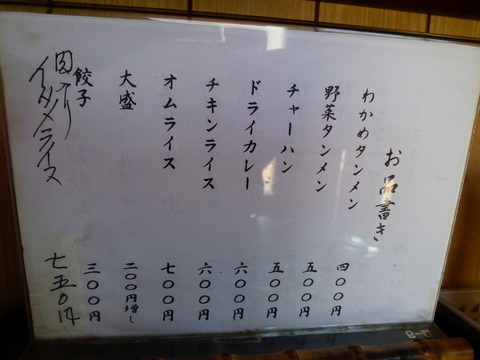 お品書き
わかめタンメン 四〇〇円
野菜タンメン 五〇〇円
チャーハン 五〇〇円
ドライカレー 六〇〇円
チキンライス 六〇〇円
オムライス 七〇〇円
大盛 二〇〇円増し
餃子 三〇〇円
肉入り
イタメライス 七五〇円